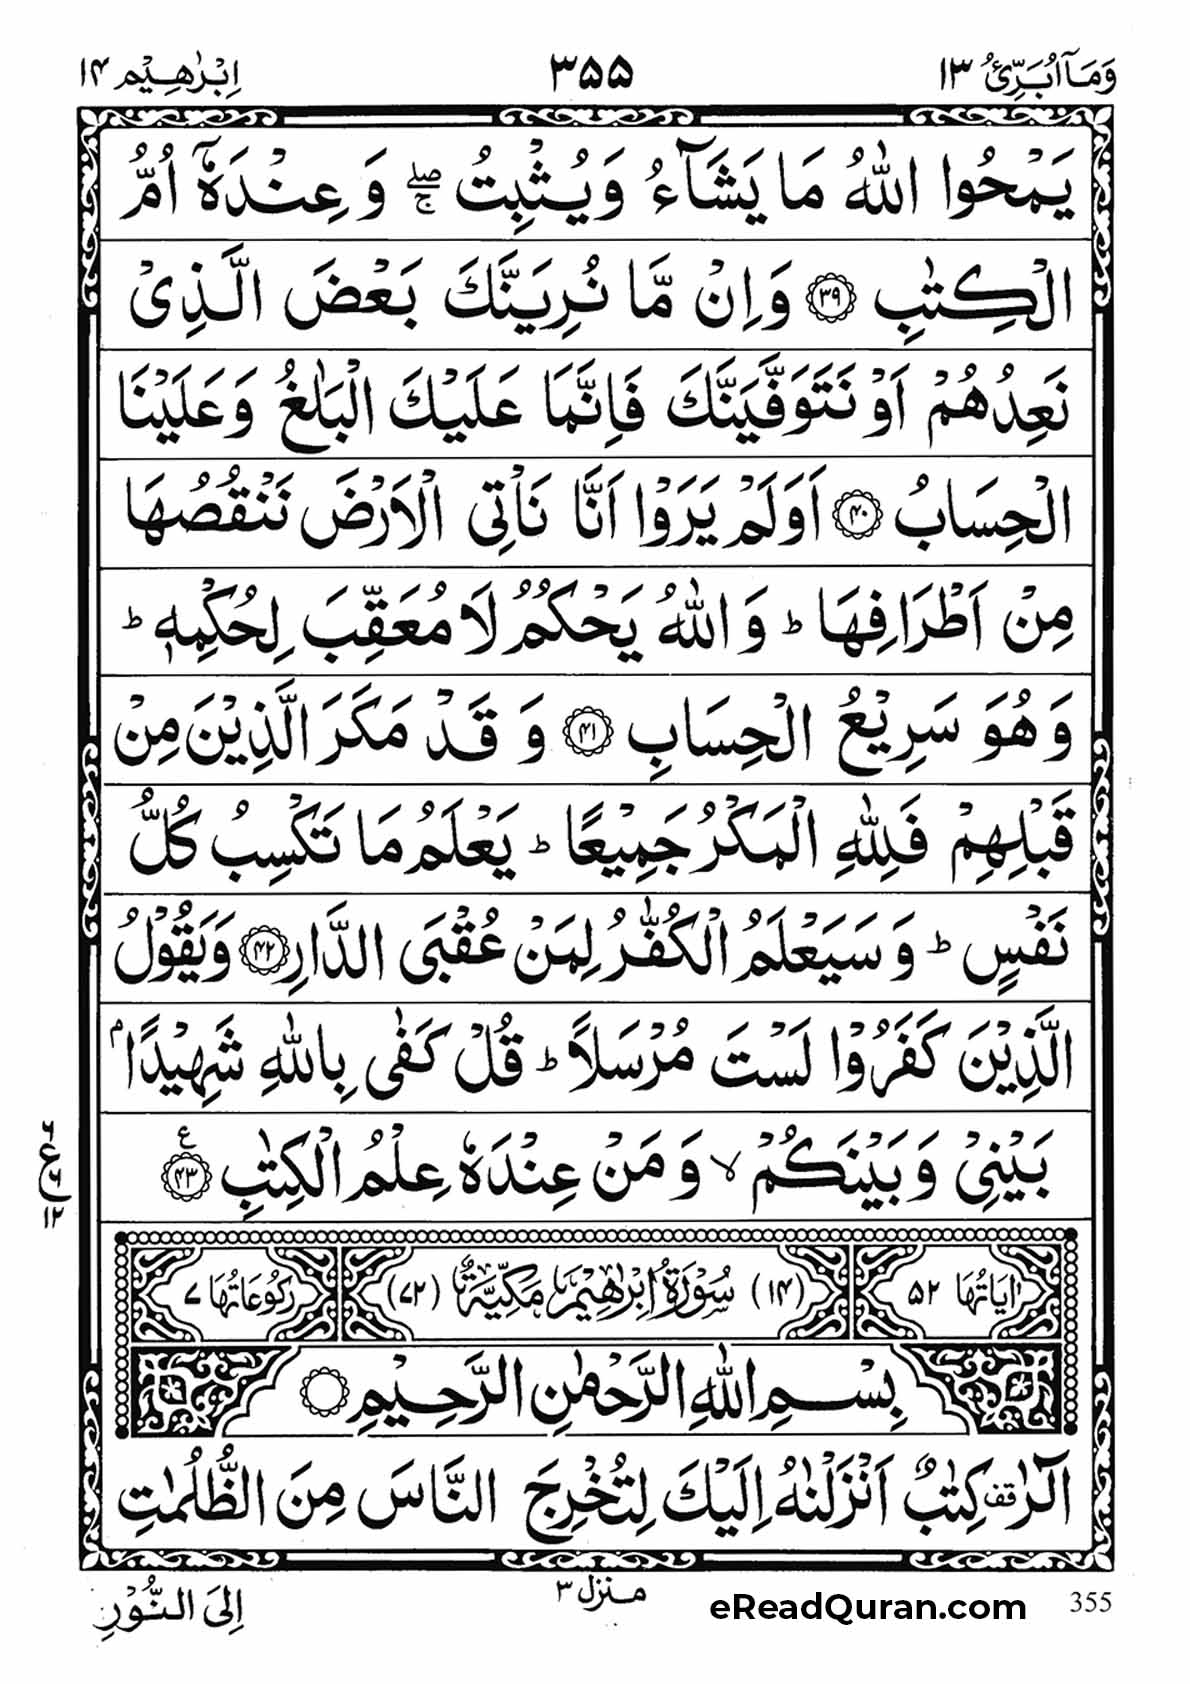 وَمَآ اُبَرِّئُ ۱۳ ۳۵۵ اِبْرٰهِيْم ۱۴
يَمْحُوا اللّٰهُ مَا يَشَآءُ وَيُثْبِتُ ۖۚ وَعِنْدَهٗٓ اُمُّ
الْكِتٰبِ ۳۹ وَاِنْ مَّا نُرِيَنَّكَ بَعْضَ الَّذِىْ
نَعِدُهُمْ اَوْ نَتَوَفَّيَنَّكَ فَاِنَّمَا عَلَيْكَ الْبَلٰغُ وَعَلَيْنَا
الْحِسَابُ ۴۰ اَوَلَمْ يَرَوْا اَنَّا نَاْتِى الْاَرْضَ نَنْقُصُهَا
مِنْ اَطْرَافِهَا ؕ وَاللّٰهُ يَحْكُمُ لَا مُعَقِّبَ لِحُكْمِهٖ ؕ
وَهُوَ سَرِيْعُ الْحِسَابِ ۴۱ وَقَدْ مَكَرَ الَّذِيْنَ مِنْ
قَبْلِهِمْ فَلِلّٰهِ الْمَكْرُ جَمِيْعًا ؕ يَعْلَمُ مَا تَكْسِبُ كُلُّ
نَفْسٍ ؕ وَسَيَعْلَمُ الْكُفّٰرُ لِمَنْ عُقْبَى الدَّارِ ۴۲ وَيَقُوْلُ
الَّذِيْنَ كَفَرُوْا لَسْتَ مُرْسَلًا ؕ قُلْ كَفٰى بِاللّٰهِ شَهِيْدًاۢ
بَيْنِىْ وَبَيْنَكُمْ ۙ وَمَنْ عِنْدَهٗ عِلْمُ الْكِتٰبِ ۴۳ ع
۶ ع ۶ ۱۲
اٰيَاتُهَا ۵۲ (۱۴) سُوْرَةُ اِبْرٰهِيْمَ مَكِّيَّةٌ (۷۲) رُكُوْعَاتُهَا ۷
بِسْمِ اللّٰهِ الرَّحْمٰنِ الرَّحِيْمِ
الٓرٰ قف كِتٰبٌ اَنْزَلْنٰهُ اِلَيْكَ لِتُخْرِجَ النَّاسَ مِنَ الظُّلُمٰتِ
اِلَى النُّوْرِ منزل ۳ eReadQuran.com 355